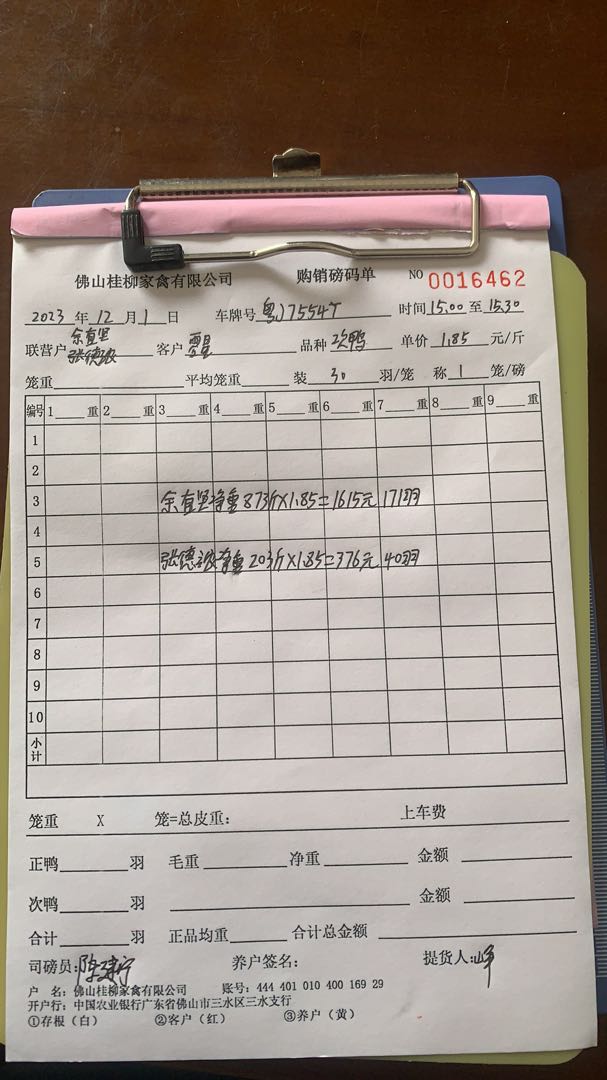 佛山桂柳家禽有限公司 购销磅码单 NO 0016462
2023 年 12 月 1 日 车牌号 粤J7554T 时间 15.00 至 15.30
余直坚
联营户 张德波 客户 品种 次鸭 单价 1.85 元/斤
笼重 平均笼重 装 30 羽/笼 称 1 笼/磅
编号 1 重 2 重 3 重 4 重 5 重 6 重 7 重 8 重 9 重
1
2
3 余直坚净重873斤×1.85=1615元 171羽
4
5 张德波净重203斤×1.85=376元 40羽
6
7
8
9
10
小计
笼重 X 笼=总皮重: 上车费
正鸭 羽 毛重 净重 金额
次鸭 羽 金额
合计 羽 正品均重 合计总金额
司磅员: 养户签名: 提货人: 峰
户 名: 佛山桂柳家禽有限公司 账号: 444 401 010 400 169 29
开户行: 中国农业银行广东省佛山市三水区三水支行
①存根(白) ②客户(红) ③养户(黄)